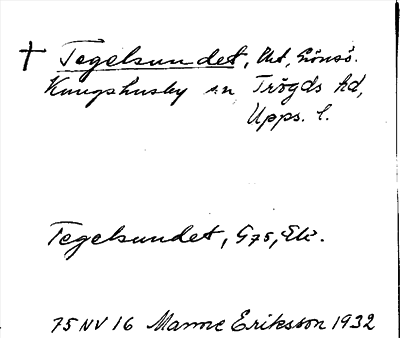 † Tegelsundet, Vht, Grönsö.
Kungshusby sn Trögds hd,
Upps. l.
Tegelsundet, G75, Ek.
75 NV 16 Manne Eriksson 1932